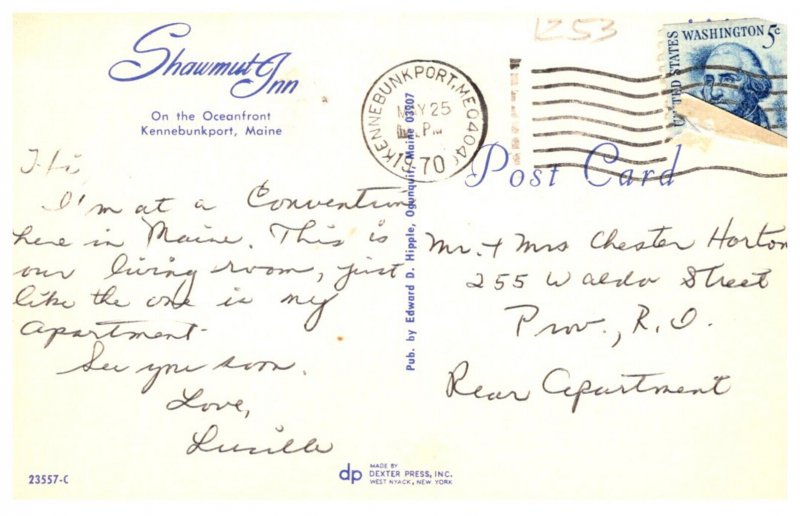 1253
Shawmut Inn
On the Oceanfront
Kennebunkport, Maine
KENNEBUNKPORT, ME 0404
MAY 25
PM
1970
UNITED STATES
WASHINGTON 5c
Post Card
Hi,
I'm at a Convention
here in Maine. This is
our living room, just
like the one in my
apartment.
See you soon.
Love,
Lucille
Pub. by Edward D. Hipple, Ogunquit, Maine 03907
Mr. + Mrs Chester Horton
255 Waldo Street
Prov., R.I.
Rear Apartment
23557-C
dp
MADE BY
DEXTER PRESS, INC.
WEST NYACK, NEW YORK